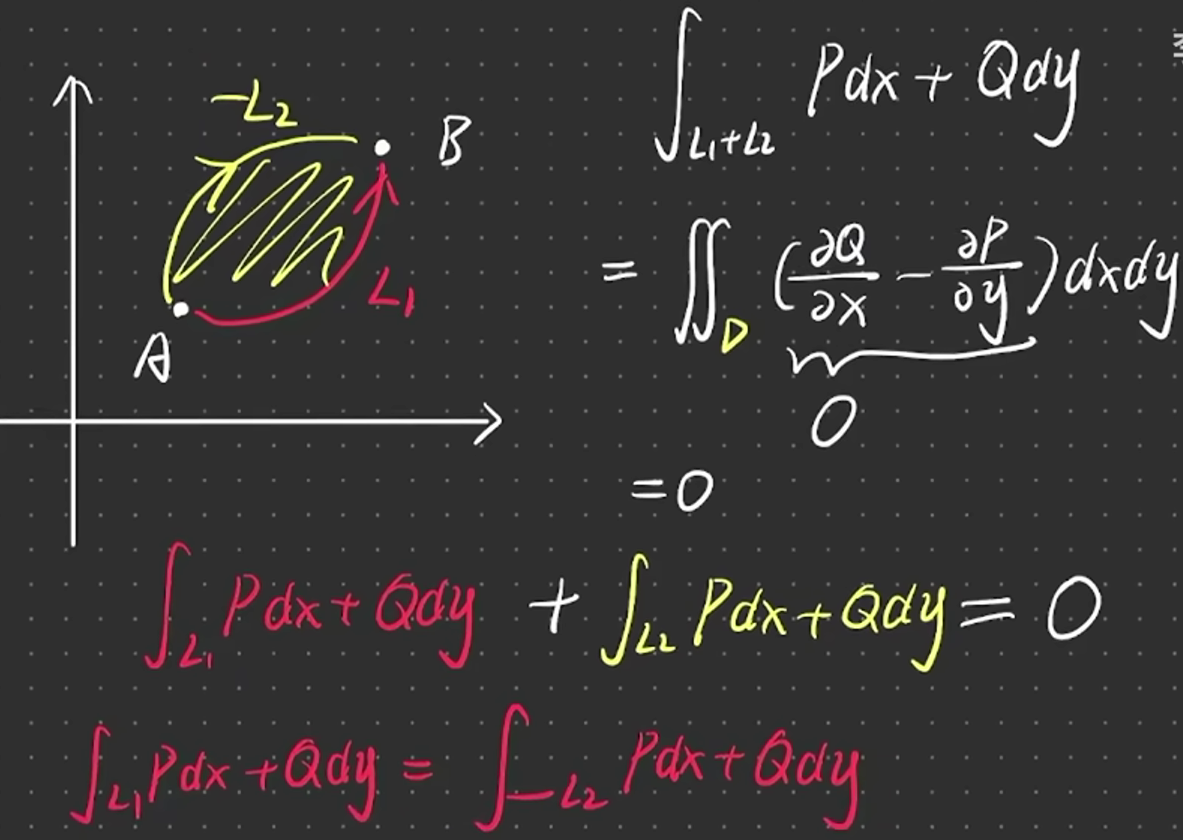 -L₂
B
L₁
A
∫_{L₁+L₂} Pdx + Qdy
= ∬_D (∂Q/∂x - ∂P/∂y) dxdy
0
= 0
∫_{L₁} Pdx + Qdy + ∫_{L₂} Pdx + Qdy = 0
∫_{L₁} Pdx + Qdy = ∫_{-L₂} Pdx + Qdy